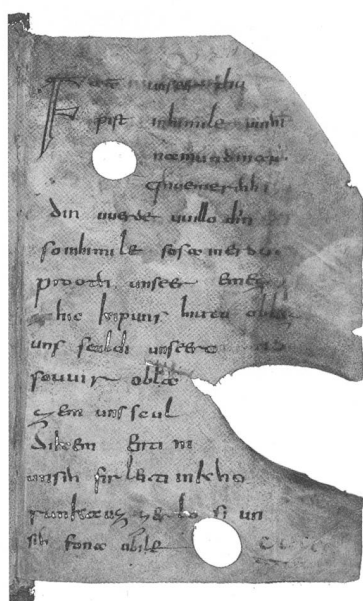 Fater unseer thu
pist inhimile uuihi
namun dinan
qhueme rihhi
din uuerde uuillo din
so inhimile sosa inerdu
prooth unseer emez
hic kip uns hiutu oblaz
uns sculdi unseero
so uuir oblaz
zem uns scul
dikem enti ni
unsih firleiti inkho
runka uz zer losi un
sih fona ubile